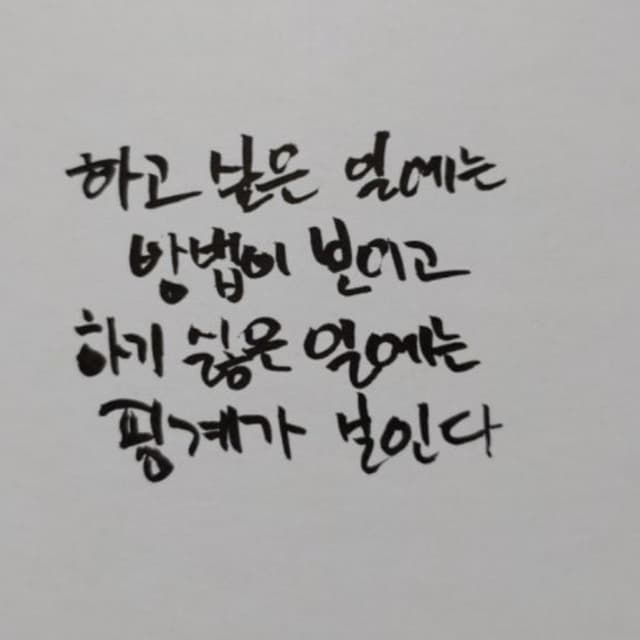 하고 싶은 일에는
방법이 보이고
하기 싫은 일에는
핑계가 보인다